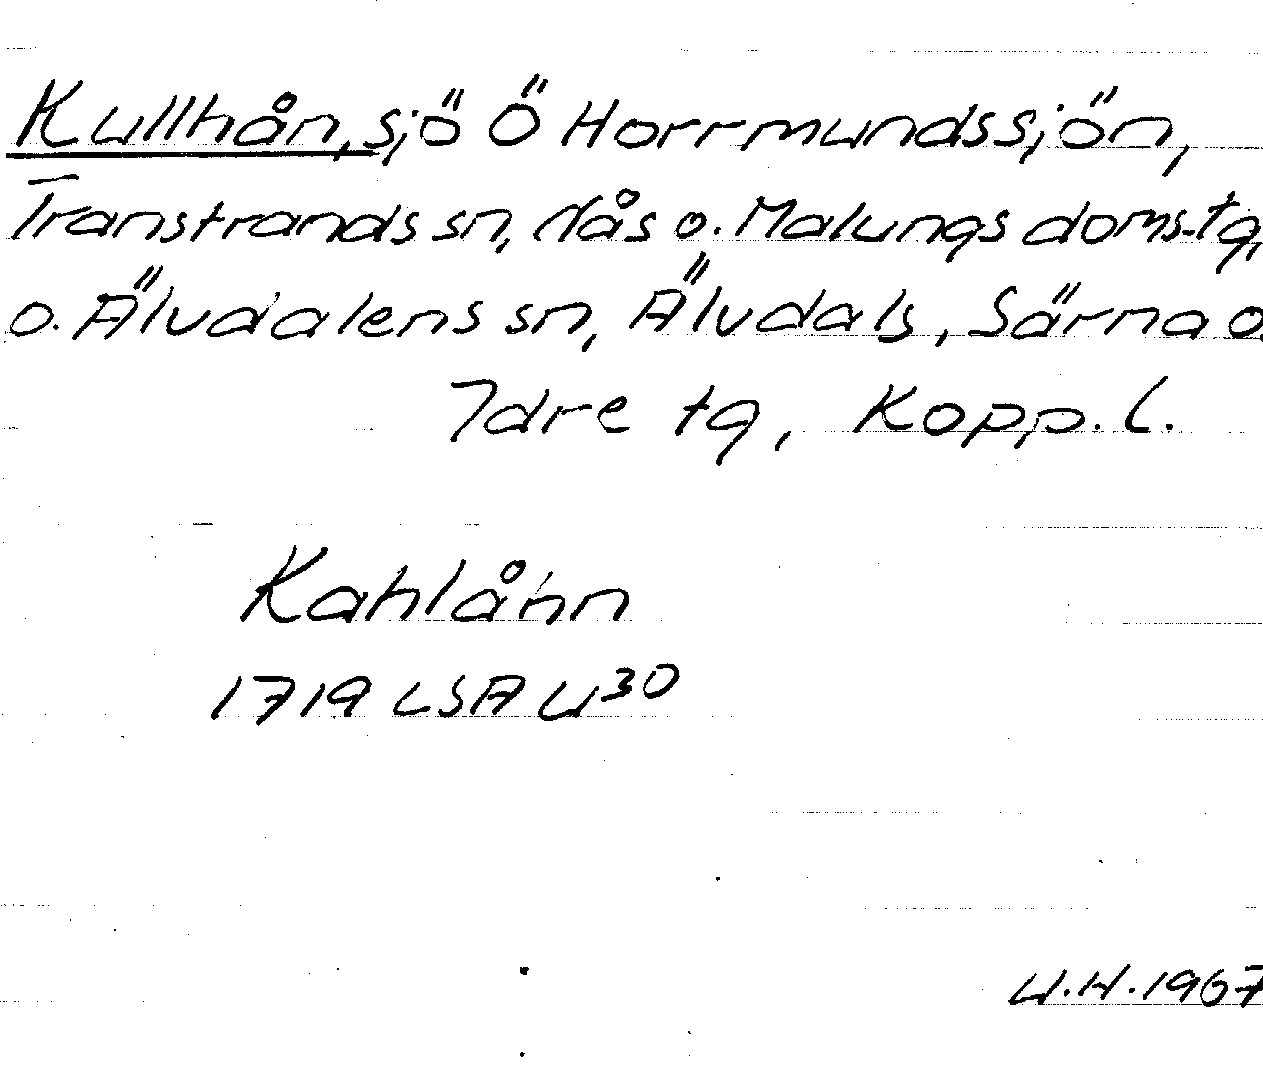 Kullhån, sjö Ö Horrmundssjön,
Transtrands sn, Nås o. Malungs doms-tg,
o. Älvdalens sn, Älvdals, Särna o.
Idre tg, Kopp. l.
Kahlånn
1719 LSA U30
U.H. 1967